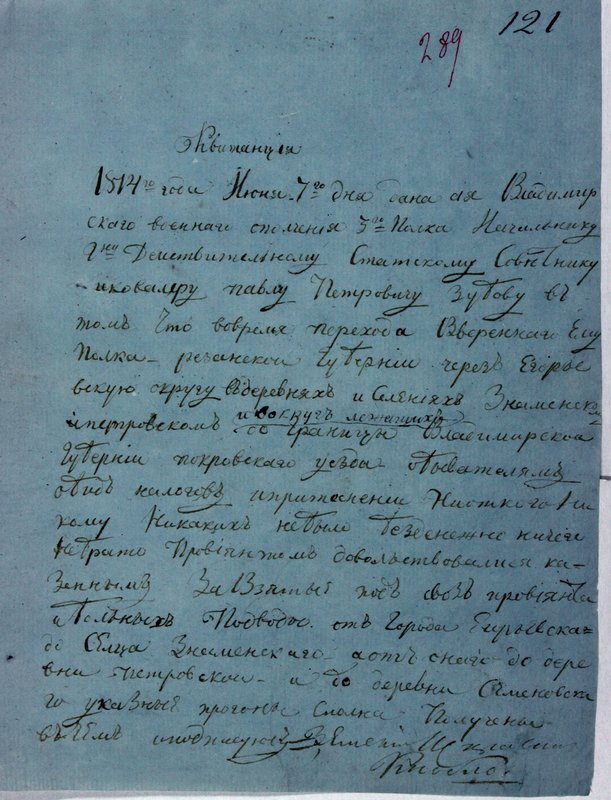 121
289
Квитанция
1814го года Июня 7го дня дана сия Владимир
скаго военнаго ополчения 5го Полка Начальнику
Гну Действительному Статскому Совѣтнику
икавалеру павлу Петровичу Зубову въ
томъ Что вовремя перехода Ввереннаго Ему
Полка резанской Губерніи черезъ Егорье
вскую округу Вдеревняхъ и Селенияхъ Знаменском
ипетровскомъ и вокругъ лежащихъ
до Границы Владимирской
Губерніи покровскаго уезда обывателямъ
обидъ налоговъ ипритеснении Ни
кому Никакихъ небыло безденежно ничего
небрато Провіянтомъ довольствовался ка-
зеннымъ За Взятыя подъ свозъ провіянта
и больныхъ Подводы отъ Города Егорьевска
до Сельца Знаменскаго аотъ онаго до дере
вни петровской и до деревни Семеновска
го указные прогоны сполна Получены
въчемъ